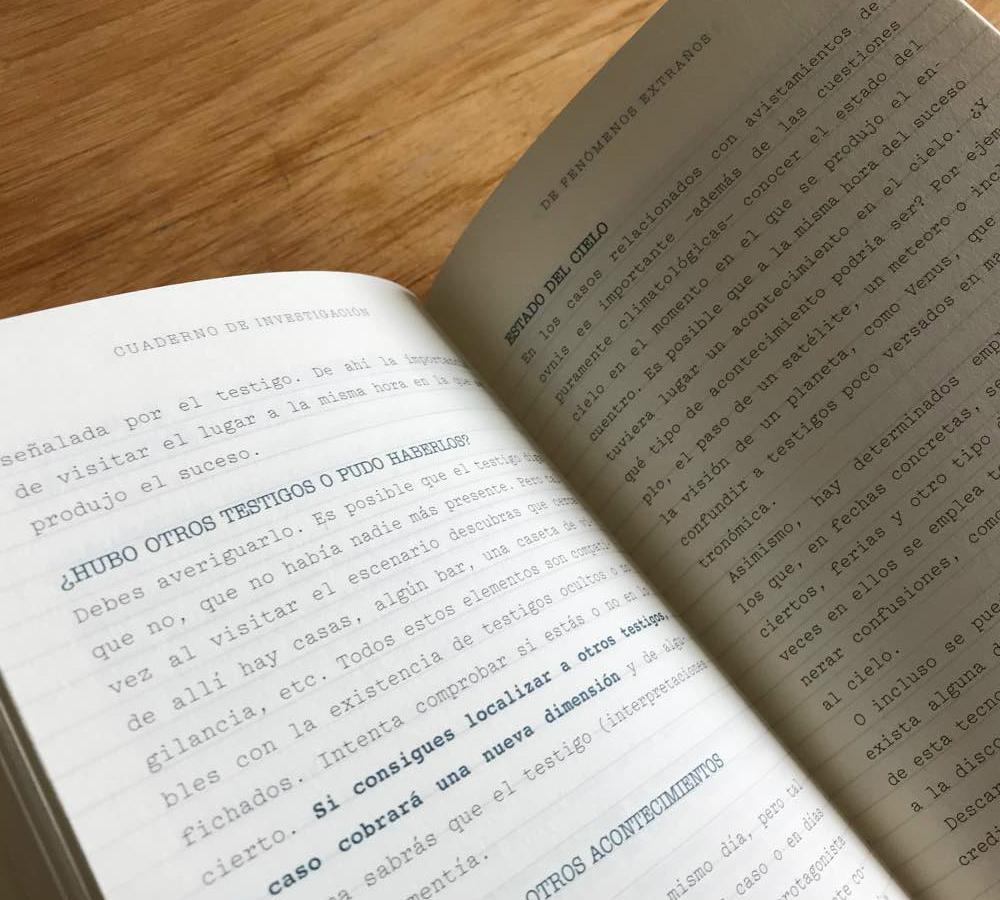 CUADERNO DE INVESTIGACIÓN
señalada por el testigo. De ahí la
de visitar el lugar a la misma hora en la que
produjo el suceso.
¿HUBO OTROS TESTIGOS O PUDO HABERLOS?
Debes averiguarlo. Es posible que el testigo
que no, que no había nadie más presente. Pero
vez al visitar el escenario descubras que
de allí hay casas, algún bar, una caseta de
gilancia, etc. Todos estos elementos son
bles con la existencia de testigos ocultos o
fichados. Intenta comprobar si estás o no en lo
cierto. Si consigues localizar a otros testigos,
caso cobrará una nueva dimensión y de
sabrás que el testigo (interpretaciones
mentía.
OTROS ACONTECIMIENTOS
mismo día, pero tal
caso o en días
protagonista
te co-
DE FENÓMENOS EXTRAÑOS
ESTADO DEL CIELO
En los casos relacionados con avistamientos de
ovnis es importante —además de las cuestiones
puramente climatológicas— conocer el estado del
cielo en el momento en el que se produjo el en-
cuentro. Es posible que a la misma hora del suceso
tuviera lugar un acontecimiento en el cielo. ¿Y
qué tipo de acontecimiento podría ser? Por
plo, el paso de un satélite, un meteoro o
la visión de un planeta, como Venus, que
confundir a testigos poco versados en
tronómica.
Asimismo, hay determinados
los que, en fechas concretas,
ciertos, ferias y otro tipo
veces en ellos se emplea
nerar confusiones,
al cielo.
O incluso se
exista alguna
de esta
a la